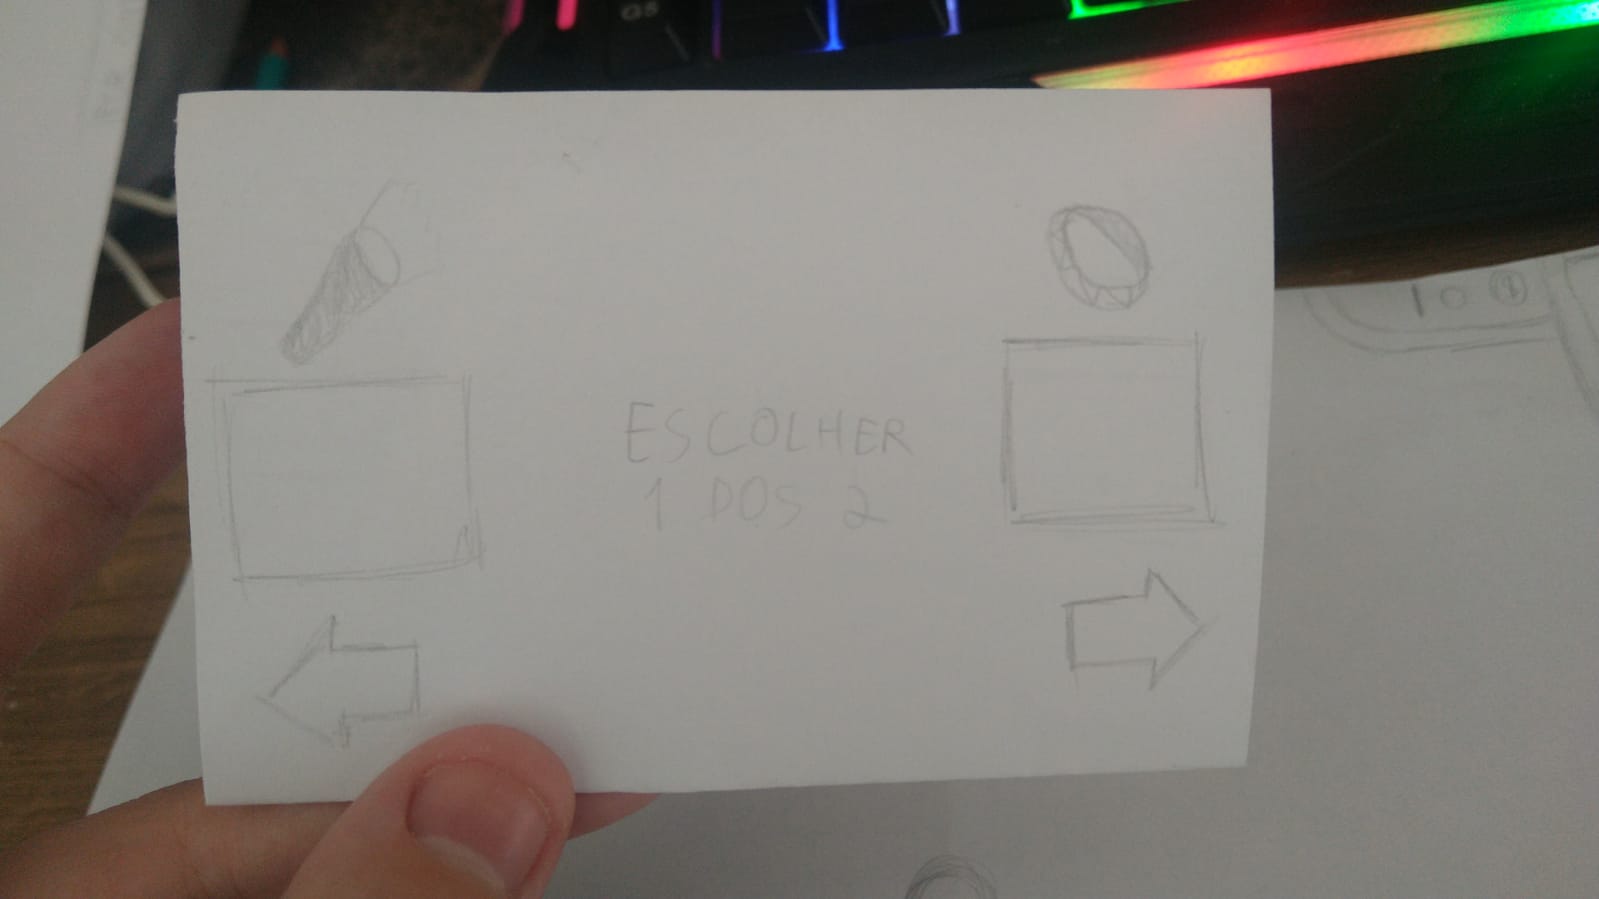 ESCOLHER
1 DOS 2